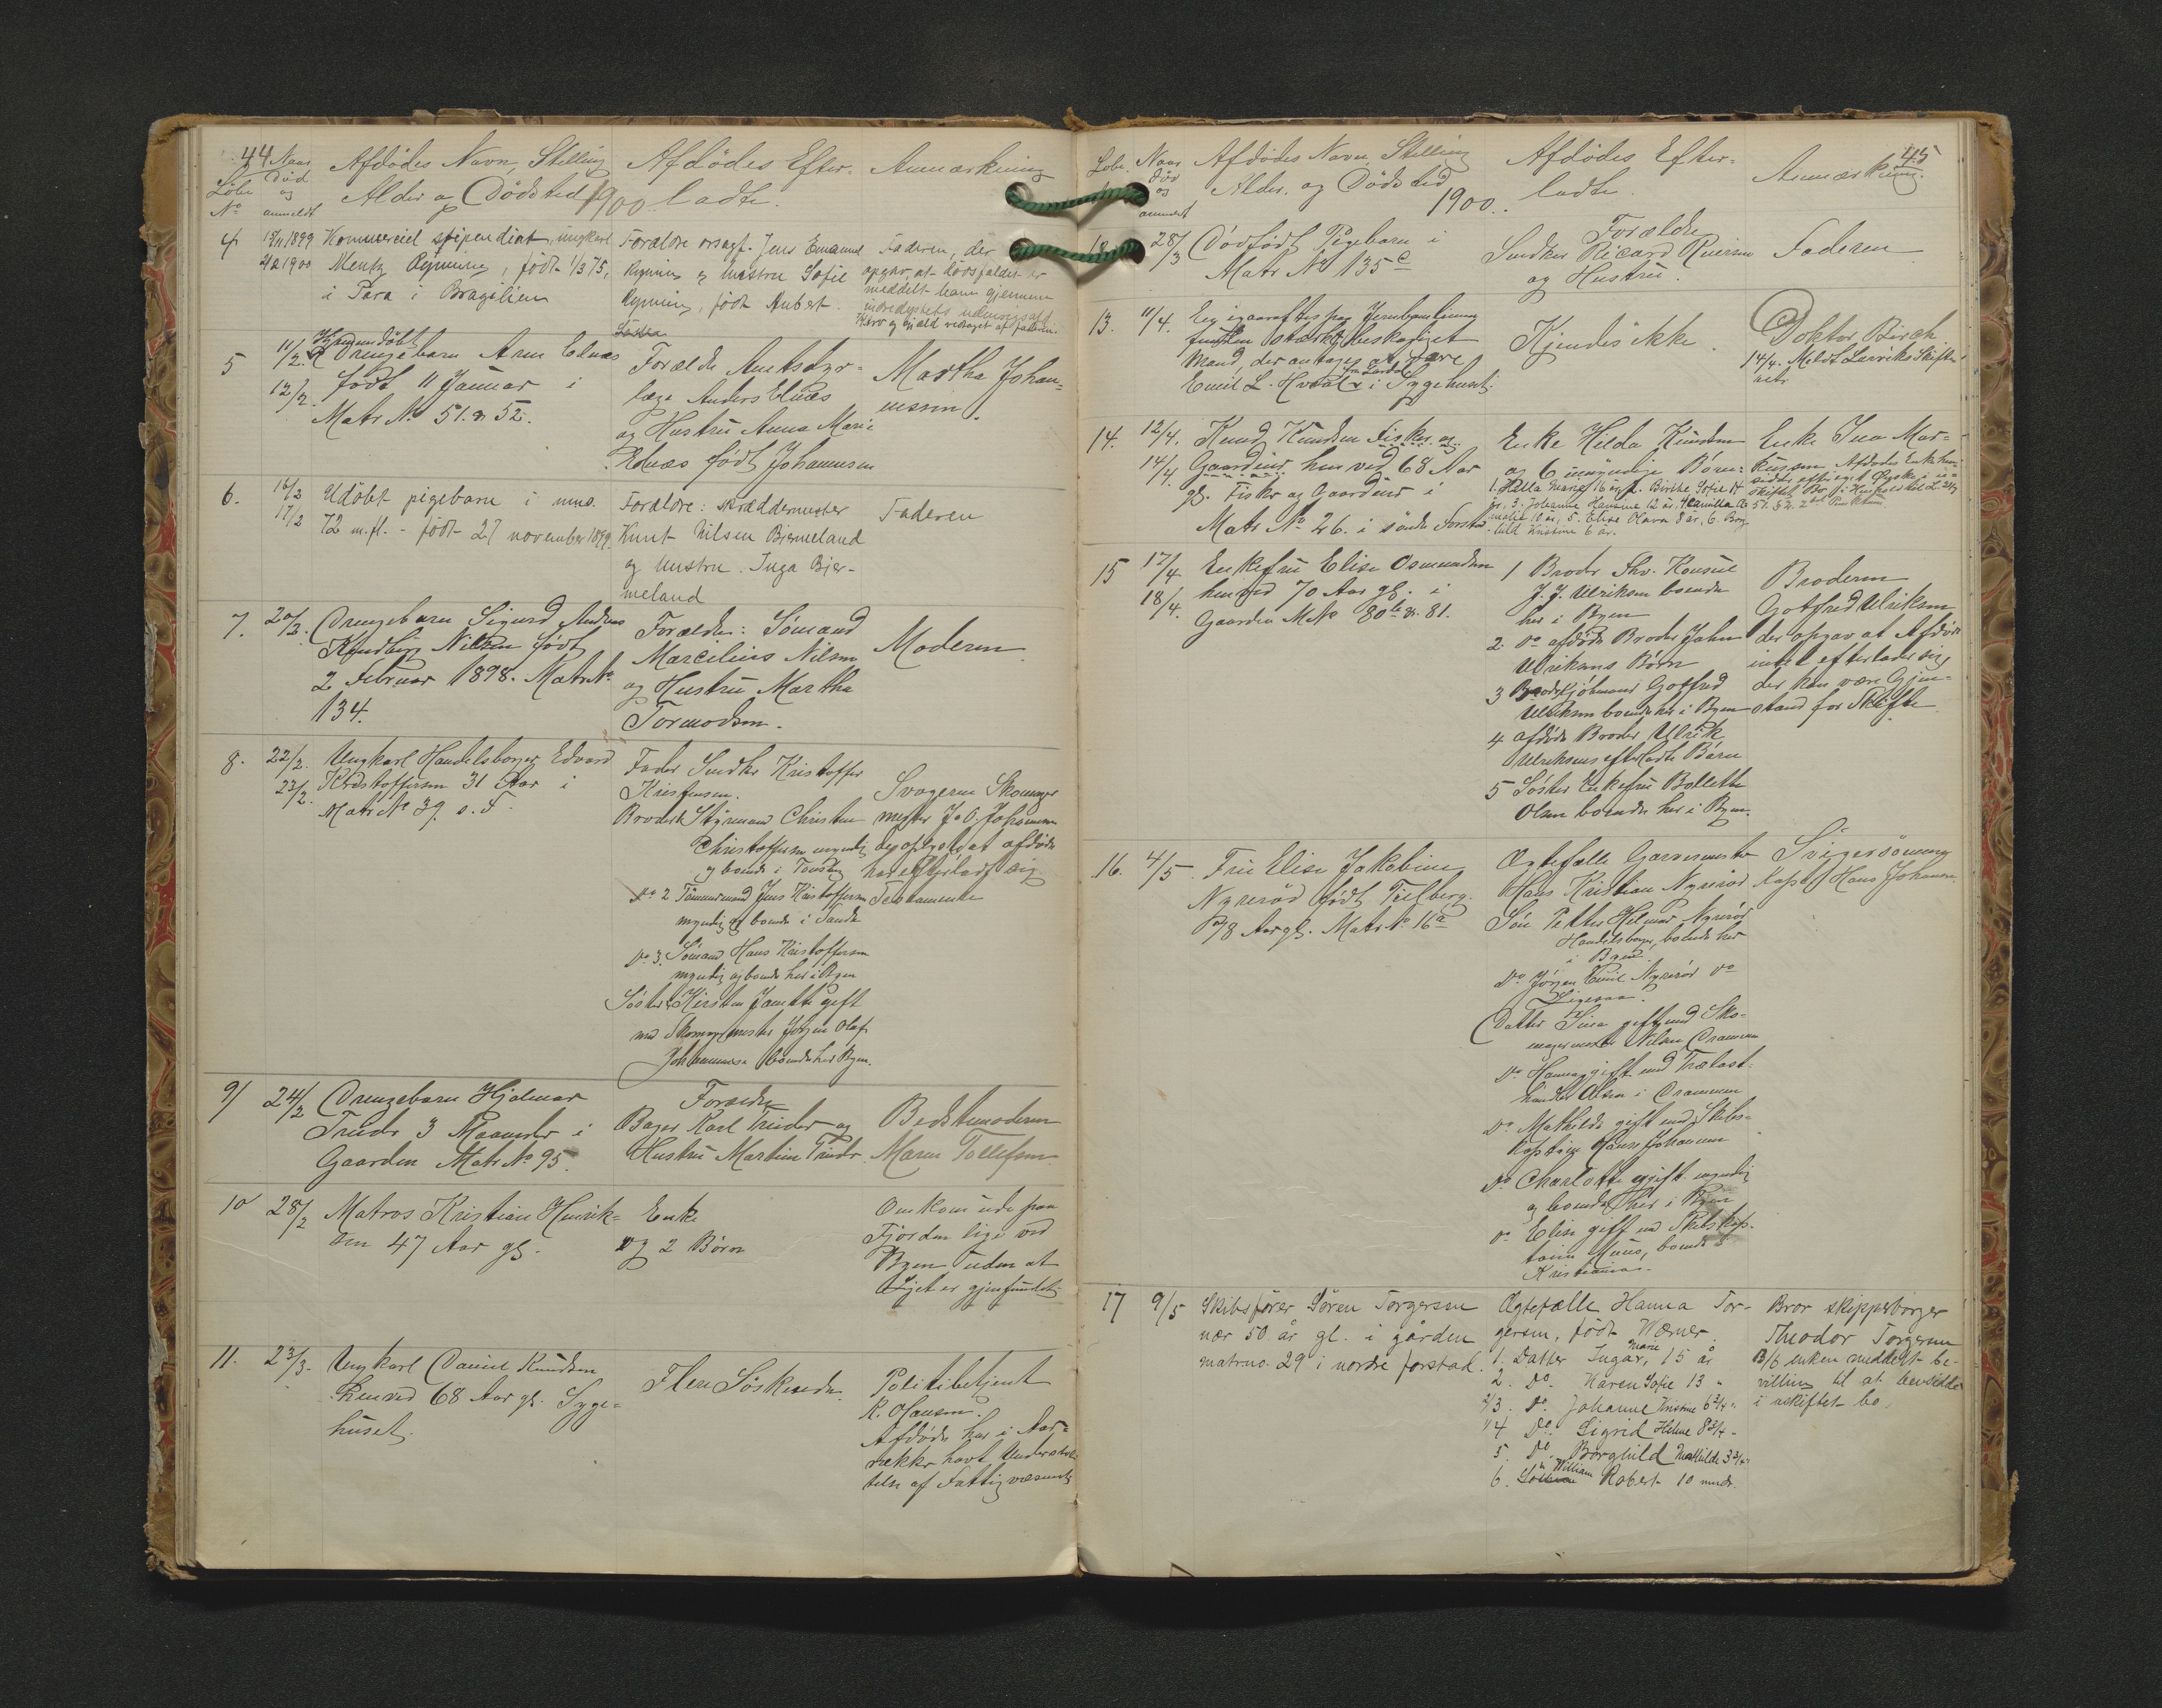 44
Naar
Afdödes Navn, Stilling
Afdödes Efter-
Anmærkning
Löbe
Död
og
Alder og Dödsted
1900
ladte.
No
anmeldt
4
1899 Kommerciel stipendiat, ungkarl
1900 Mentz Rynning, född 1/3 75,
i Para i Brazilien
Forældre Jens Emanuel
Rynning og hustru Sofie
Rynning, född Aubert.
Faderen, der
opgav, at dödsfaldet er
meddelt ham gjennem
5
11/2.
12/2.
Hjemmedöbt
Drengebarn Arne
född 11 Januar i
Matr No 51. & 52.
Forældre Amtsdyr-
læge Anders
og Hustru Anna Marie
född Johannesen
Martha Johan-
nessen.
6.
16/2
17/2
Udöbt pigebarn i mno.
72 m.fl. - född 27 november 1899.
Forældre: skræddermester
Knut Nilsen Bjermeland
og hustru Inga Bjer-
meland
Faderen
7.
20/2.
Drengebarn Sigurd Andreas
Nilsen född
2 Februar 1898. Matr No
134.
Forældre: Sömand
Marcelius Nilsen
og Hustru Martha
Tormodsen.
Moderen
8.
22/2.
23/2.
Ungkarl Handelsborger Edvard
Kristoffersen 31 Aar i
Matr No 39. s. F.
Fader Snedker Kristoffer
Kristensen.
Broder 1 Styrmand Christen
Christoffersen myndig
og boende i Tönsberg
Do 2 Tömmermand Jens Kristoffersen
myndig og boende i Sande
Do 3. Sömand Hans Kristoffersen
myndig og boende her i Byen
Söster Kirsten Janette gift
med Skomagermester Jörgen Olaf
Johannessen boende her Byen.
Svogeren Skomager
mester J. O. Johannessen
der opgav at afdöde
har efterladt sig
Testamente
9/
24/2
Drengebarn Hjalmar
3 Maaneder i
Gaarden Matr No 95.
Forældre
Bager Karl og
Hustru Martine
Bedstemoderen
Maren Tollefsen
10
28/2
Matros Kristian Henrik-
sen 47 Aar gl.
Enke
og 2 Börn
Omkom ude paa
Fjorden lige ved
Byen uden at
Liget er gjenfundet
11.
23/3.
Ungkarl Daniel Knudsen
henved 68 Aar gl. Syge-
huset.
Flere Söskende
Politibetjent
K. Hansen.
Afdöde har i Aar-
rækker havt Understöt-
telse af Fattigvæsenet
45
Löbe
Naar
död
og
anmeldt
Afdödes Navn, Stilling
Alder. og Dödsted
1900.
Afdödes Efter-
ladte.
Anmærkning.
28/3
Dödfödt Pigebarn i
Matr No 135 c
Forældre
Snedker Ricard
og Hustru.
Faderen
13.
11/4.
En igaaraftes paa Jernbanelinien
funden stærkt beskadiget
Mand, der antages at være
Emil L. i Sygehuset.
Kjendes ikke.
Doktor Birch
14/4. Meldt Larviks Skifte-
14.
12/4.
14/4
Knud Knudsen Fisker og
Gaardeier henved 68 Aar
gl. Fisker og Gaardeier i
Matr No 26. i söndre Forstad
Enke Helda Knudsen
og 6 umyndige Börn:
1. Marie 16 år, 2. Birthe Sofie 14
år, 3. Johanne 12 år, 4 Camilla
10 år, 5. Elise Olava 8 år, 6. Borg-
hild Kristine 6 år.
Enke Ina Mar-
kussen. Afdödes Enke
15
17/4
18/4.
Enkefru Elise Osmundsen
henved 70 Aar gl. i
Gaarden M No 80 b & 81.
1 Broder Fhv. Konsul
J. J. Ulriksen boende
her i Byen
2. Do afdöde Broder Johan
Ulriksens Börn
3 Broder Kjöbmand Gotfred
Ulriksen boende her i Byen
4 afdöde Broder Ulrik
Ulriksens efterladte Börn
5 Söster Enkefru Bollette
Olsen boende her i Byen.
Broderen
Gotfred Ulriksen
der opgav at Afdöde
intet efterlader sig
der kan være Gjen-
stand for Skifte
16.
4/5.
Fru Elise Jakobine
Nyreröd född
78 Aar gl. Matr No 16 a
Ægtefælle Garvermester
Hans Kristian Nyreröd
Sön Petter Hilmar Nyreröd
Handelsborger, boende her
i Byen.
Do Jörgen Emil Nyreröd Do
Ligesaa.
Datter Sina gift med Sko-
magermester Nilsen Drammen
Do Hanna gift med Trælast-
handler Olsen i Drammen
Do Mathilde gift med Skibs-
kaptein Hans Johansen
Do Charlotte ugift myndig
og boende her i Byen
Do Elise gift med Skibskap-
tein boende i
Kristiania.
Svigersönnen
Kapt Hans Johansen
17
9/5
Skibsförer Sören Torgersen
nær 50 år gl. i gården
matrno. 29 i nordre forstad.
Ægtefælle Hanna Tor-
gersen, född Werner.
1. Datter Ingar Marie, 15 år
2. Do Karen Sofie 13 "
3. Do Johanne Kristine 6 3/4 "
4 Do Sigrid Helene 8 3/4 "
5. Do Borghild Mathilde 3 3/4 "
6. Sön William Robert 10 mndr.
Bror skipperborger
Theodor Torgersen
13/6 enken meddelt be-
villing til at hensidde
i uskiftet bo.